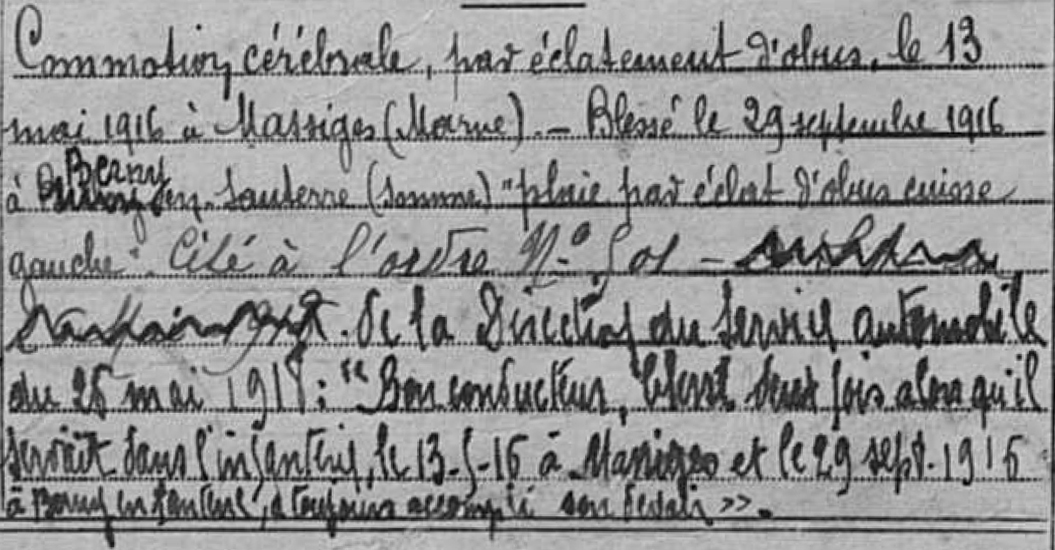 Commotion cérébrale, par éclatement d'obus, le 13
mai 1916 à Massiges (Marne). - Blessé le 29 septembre 1916
à Berny en Santerre (Somme) "plaie par éclat d'obus cuisse
gauche". Cité à l'ordre N°
de la Direction du Service automobile
du 25 mai 1918 : "Bon conducteur, blessé deux fois alors qu'il
servait dans l'infanterie, le 13-5-16 à Massiges et le 29 sept. 1916
à Berny en Santerre, a toujours accompli son devoir".